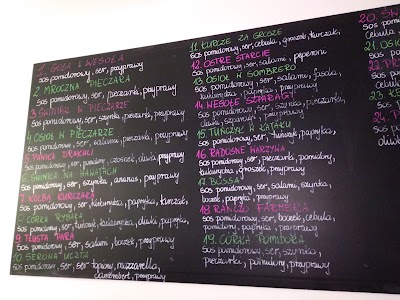 1. GOŁA & WESOŁA
sos pomidorowy, ser, przyprawy
2. MROCZNA PIECZARA
sos pomidorowy, ser, pieczarki, przyprawy
3. ŚWINIA W PIECZARZE
sos pomidorowy, ser, szynka, pieczarki, przyprawy
4. OSIOŁ W PIECZARZE
sos pomidorowy, ser, salami, pieczarki, przyprawy
5. PAŃICA DRAKULI
sos pomidorowy, ser, czosnek, oliwki, przyprawy
6. ŚWINIA NA HAWAJACH
sos pomidorowy, ser, szynka, ananas, przyprawy
7. KOLBA KURCZAKA
sos pomidorowy, ser, kukurydza, papryka, kurczak,
8. CÓRKA RYBAKA
sos pomidorowy, ser, tuńczyk, kukurydza, oliwki, papryka,
przyprawy
9. TŁUSTA PARA
sos pomidorowy, ser, salami, boczek, przyprawy
10. SEROWA UCZTA
sos pomidorowy, ser, ser topiony, mozzarella,
camembert, przyprawy
11. KURCZE ZA GROSZE
sos pomidorowy, ser, cebula, groszek, kurczak,
12. OSTRE STARCIE
sos pomidorowy, ser, salami, peperoni
13. OSIOŁ W SOMBRERO
sos pomidorowy, ser, salami, fasola,
kukurydza, papryka, przyprawy
14. WESOŁE SZPARAGI
sos pomidorowy, ser, szynka, pieczarki,
przyprawy
15. TUŃCZYK
sos pomidorowy, ser, tuńczyk, papryka,
16. RADOSNE WARZYWA
sos pomidorowy, ser, pieczarki, pomidory,
kukurydza, groszek, przyprawy
17. BOSSA
sos pomidorowy, ser, salami, szynka,
boczek, papryka, przyprawy
18. RANCZO FARMERA
sos pomidorowy, ser, boczek, cebula,
pomidory, papryka, przyprawy
19. CÓRKA POMIDORA
sos pomidorowy, ser, szynka,
pieczarka, pomidory, przyprawy
20. Ś
sos
cebula
21. OSIO
sos
22. PR
sos
23.
24.
sos